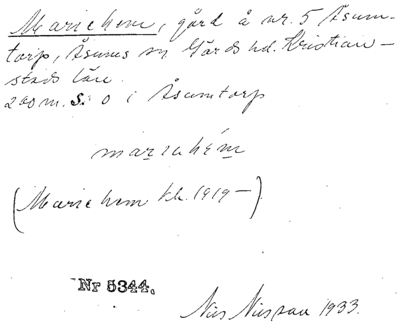 Mariehem, gård å nr. 5 Åsum-
torp, Åsums sn Gärds hd. Kristian-
stads län.
200 m. S. O i Åsumtorp
mariehém
(Mariehem kk. 1919-)
Nr 5344.
Nils Nilsson 1933.